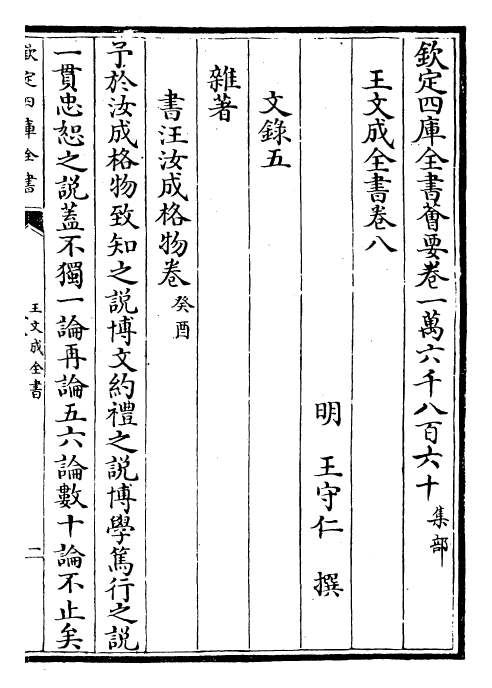 欽定四庫全書薈要卷一萬六千八百六十 集部
王文成全書卷八
明 王守仁 撰
文錄五
雜著
書汪汝成格物卷 癸酉
予於汝成格物致知之説博文約禮之説博學篤行之説
一貫忠恕之説蓋不獨一論再論五六論數十論不止矣
欽定四庫全書
王文成全書